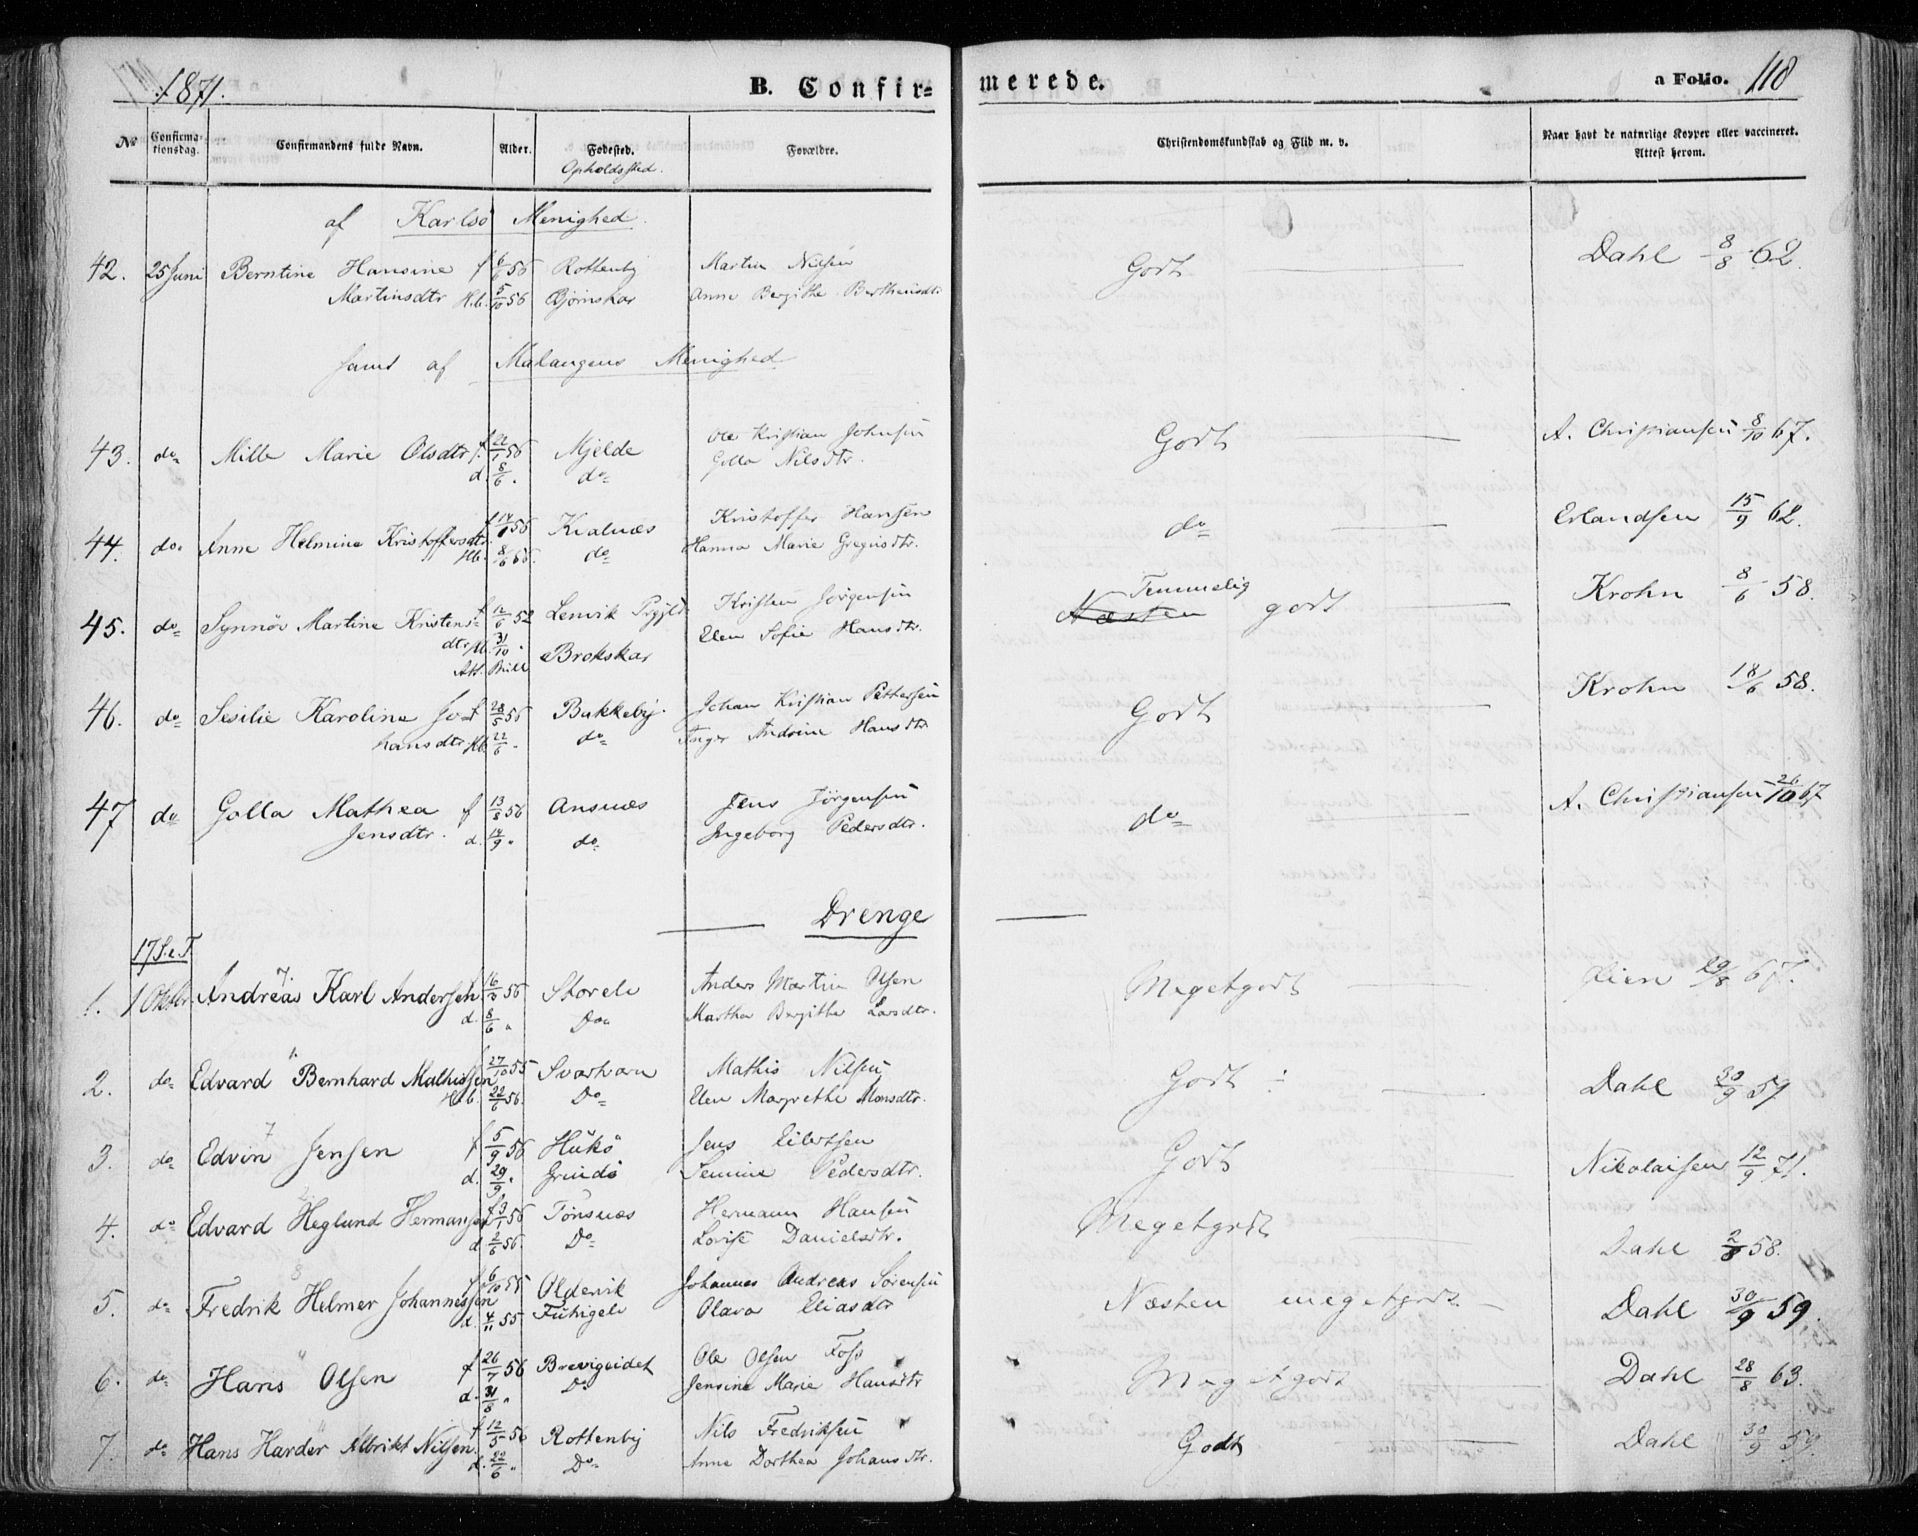 1871.
B. Confirmerede.
a Folio. 118
No
Confirmationsdag.
Confirmandens fulde Navn.
Alder.
Fødested.
Opholdssted.
Forældre.
Christendomskundskab og Flid m. v.
Naar havt de naturlige Kopper eller vaccineret. Attest herom.
af Karlsø Menighed.
42. 25 Juni Berntine Hansine f 6/6 56 Rottenby Martin Nilsen Godt Dahl 8/8 62.
Martinsdtr Hb. 5/10 56 Bjørnskar Anne Bergithe Berthensdtr
samt af Malangens Menighed
43. do Mille Marie Olsdtr f. 21/1 56 Mjelde Ole Kristian Johnsen Godt A. Christiansen 8/10 67.
d. 8/6. do Golla Nilsdtr.
44. do Anne Helmine Kristoffersdtr. f 14/1 56 Kvalnæs Kristoffer Hansen do Erlandsen 15/9 62.
Hb. 8/6 56. do Hanna Marie Gregusdtr.
45. do Synnøv Martine Kristens- f 12/6 52 Lenvik Prgjld Kristen Jørgensen Næsten Temmelig godt Krohn 8/6 58.
dtr Hb. 31/10. Brokskar Elen Sofie Hansdtr.
Att. Brill
46. do Sesilie Karoline Jo- f 28/5 56 Bakkeby. Johan Kristian Pettersen Godt Krohn 18/6 58.
hansdtr Hb 22/6. do Inger Andrine Hansdtr
47 do Golla Mathea f 13/8 56 Ansnæs Jens Jørgensen do A. Christiansen 26/10 67
Jensdtr. d. 14/9 " do Ingeborg Pedersdtr.
Drenge
17 S. e. T.
1. 1 Oktbr. Andreas Karl Andersen f. 16/3 56 Storelv Anders Martin Olsen Megetgodt Lien 29/8 67.
d. 8/6 " Do Martha Bergithe Larsdtr.
2. do Edvard Bernhard Mathissen f 27/10 55 Svarvarn Mathis Nilsen Godt ÷ Dahl 30/9 59
Hb. 22/6 56. Do Elen Margrethe Monsdtr.
3. do Edvin Jensen f 5/9 56 Hukø Jens Eilertsen Godt Nikolaisen 12/9 71.
d. 29/9 " Grindø Semine Pedersdtr.
4. do Edvard Heglund Hermansen f 3/1 56 Tønsnæs Hermann Hansen Megetgodt Dahl 2/8 58.
d 2/6 56. Do Lovise Danielsdtr.
5. do Fredrik Helmer Johannessen f 6/10 55 Oldervik Johannes Andreas Sørensen Næsten megetgodt Dahl 30/9 59.
d. 4/11 55 Futrigelv Olava Eliasdtr
6. do Hans Olsen f 26/7 56 Breivigeidet Ole Olsen Foss Megetgodt Dahl 28/8 63.
d. 31/8 " Do Jensine Marie Hansdtr
7. do Hans Harder Albrikt Nilsen. f 12/5 56 Rottenby Nils Fredriksen Godt Dahl 30/9 59.
d. 22/6 " Do Anne Dorthea Johansdtr.